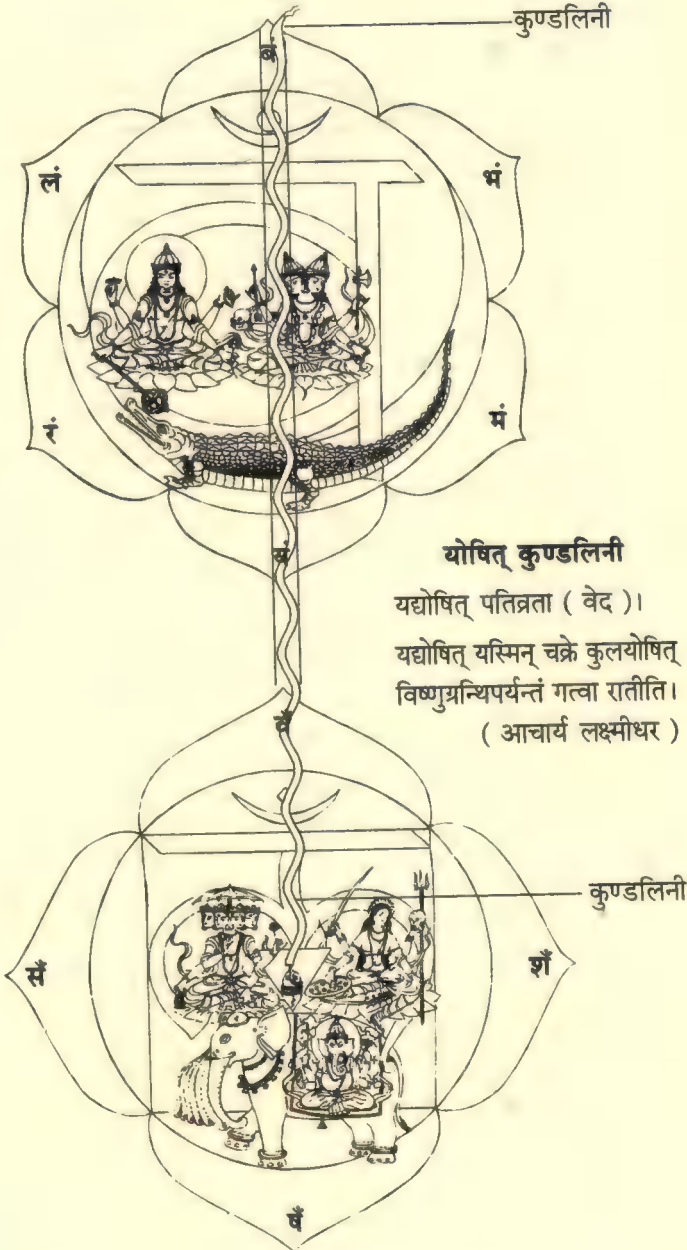 कुण्डलिनी
बं
लं
भं
रं
मं
यं
योषित् कुण्डलिनी
यद्योषित् पतिव्रता ( वेद )।
यद्योषित् यस्मिन् चक्रे कुलयोषित्
विष्णुग्रन्थिपर्यन्तं गत्वा रातीति।
( आचार्य लक्ष्मीधर )
वँ
कुण्डलिनी
सँ
शँ
षँ